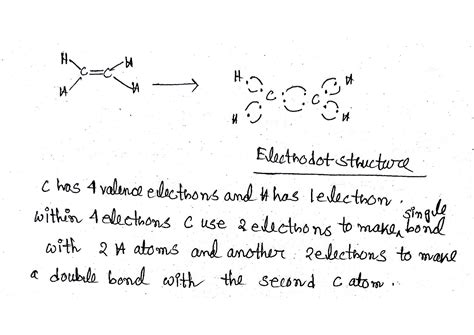 H H
C=C
H H
H H
C C
H H
Electrodot structure
C has 4 valence electrons and H has 1 electron.
within 4 electrons C use 2 electrons to make single bond
with 2 H atoms and another 2 electrons to make
a double bond with the second C atom.